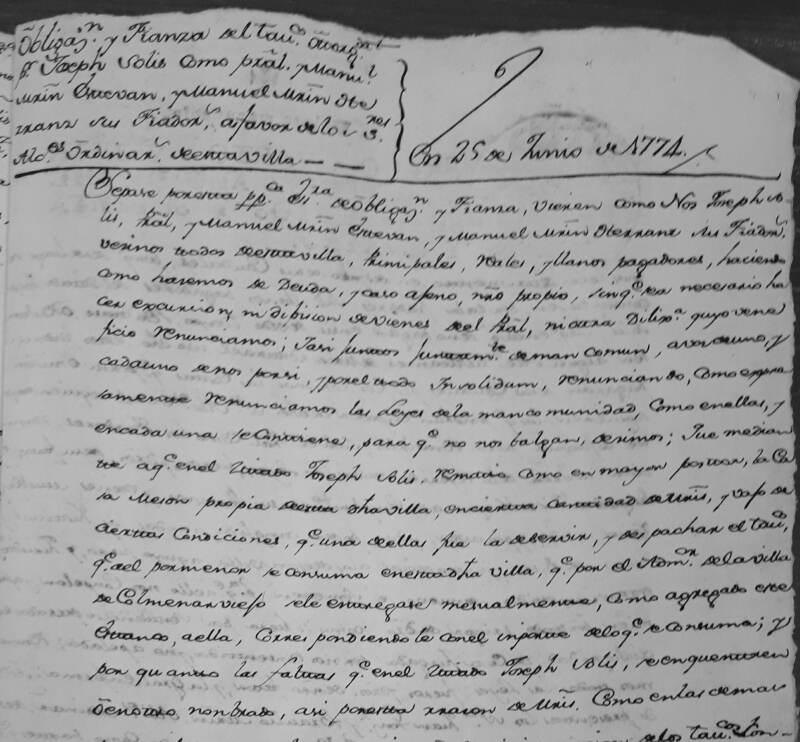 Obligaz.n y Fianza del tau.co otorg.da
p.r Joseph Solis como pral. y Man.l
Mrin Estevan, y Manuel Mrin He-
rranz sus Fiador.s a favor de lo s s.res
Alc.es Ordinar.s de esta villa
En 25 de Junio de 1774.
Sepase por esta pp.ca Es.ra de obligaz.n y Fianza, vieren como Nos Joseph So-
lis, Pral, y Manuel Mrin Estevan, y Manuel Mrin Herranz sus Fiador.s
vecinos todos de esta villa, Prinzipales, Reales, y llanos pagadores, haciendo
como hacemos de Deuda, y caso ageno, nro propio, sin q.e sea necesario ha
cer excursion, ni dibision de vienes de el Pral, ni otra Dilix.a cuyo vene
ficio renunciamos; Y asi juntos juntam.te de man comun, a voz de uno, y
cada uno de nos por si, y por el todo Insolidum, renunciando, como expre
samente renunciamos las Leyes de la mancomunidad, como en ellas, y
en cada una se contiene, para q.e no nos balgan, decimos; Que median
te a q.e en el citado Joseph Solis, remato como en mayor postor, la Ca
sa Meson propia de esta dha villa, en cierta cantidad de mrs, y vajo de
ciertas Condiciones, q.e una de ellas fue la de servir, y despachar el tau.co
q.e al por menor se consuma en esta dha villa, q.e por el Adm.or de la villa
de Colmenar viejo se le entregase mensualmente, como agregado este
Estanco, a ella, Correspondiendole con el importe de lo q.e se consuma; y
por quanto las faltas q.e en el citado Joseph Solis, se enquentren
de nombrado, asi por esta razon de mrs. Como en las demas
de los tau.cos